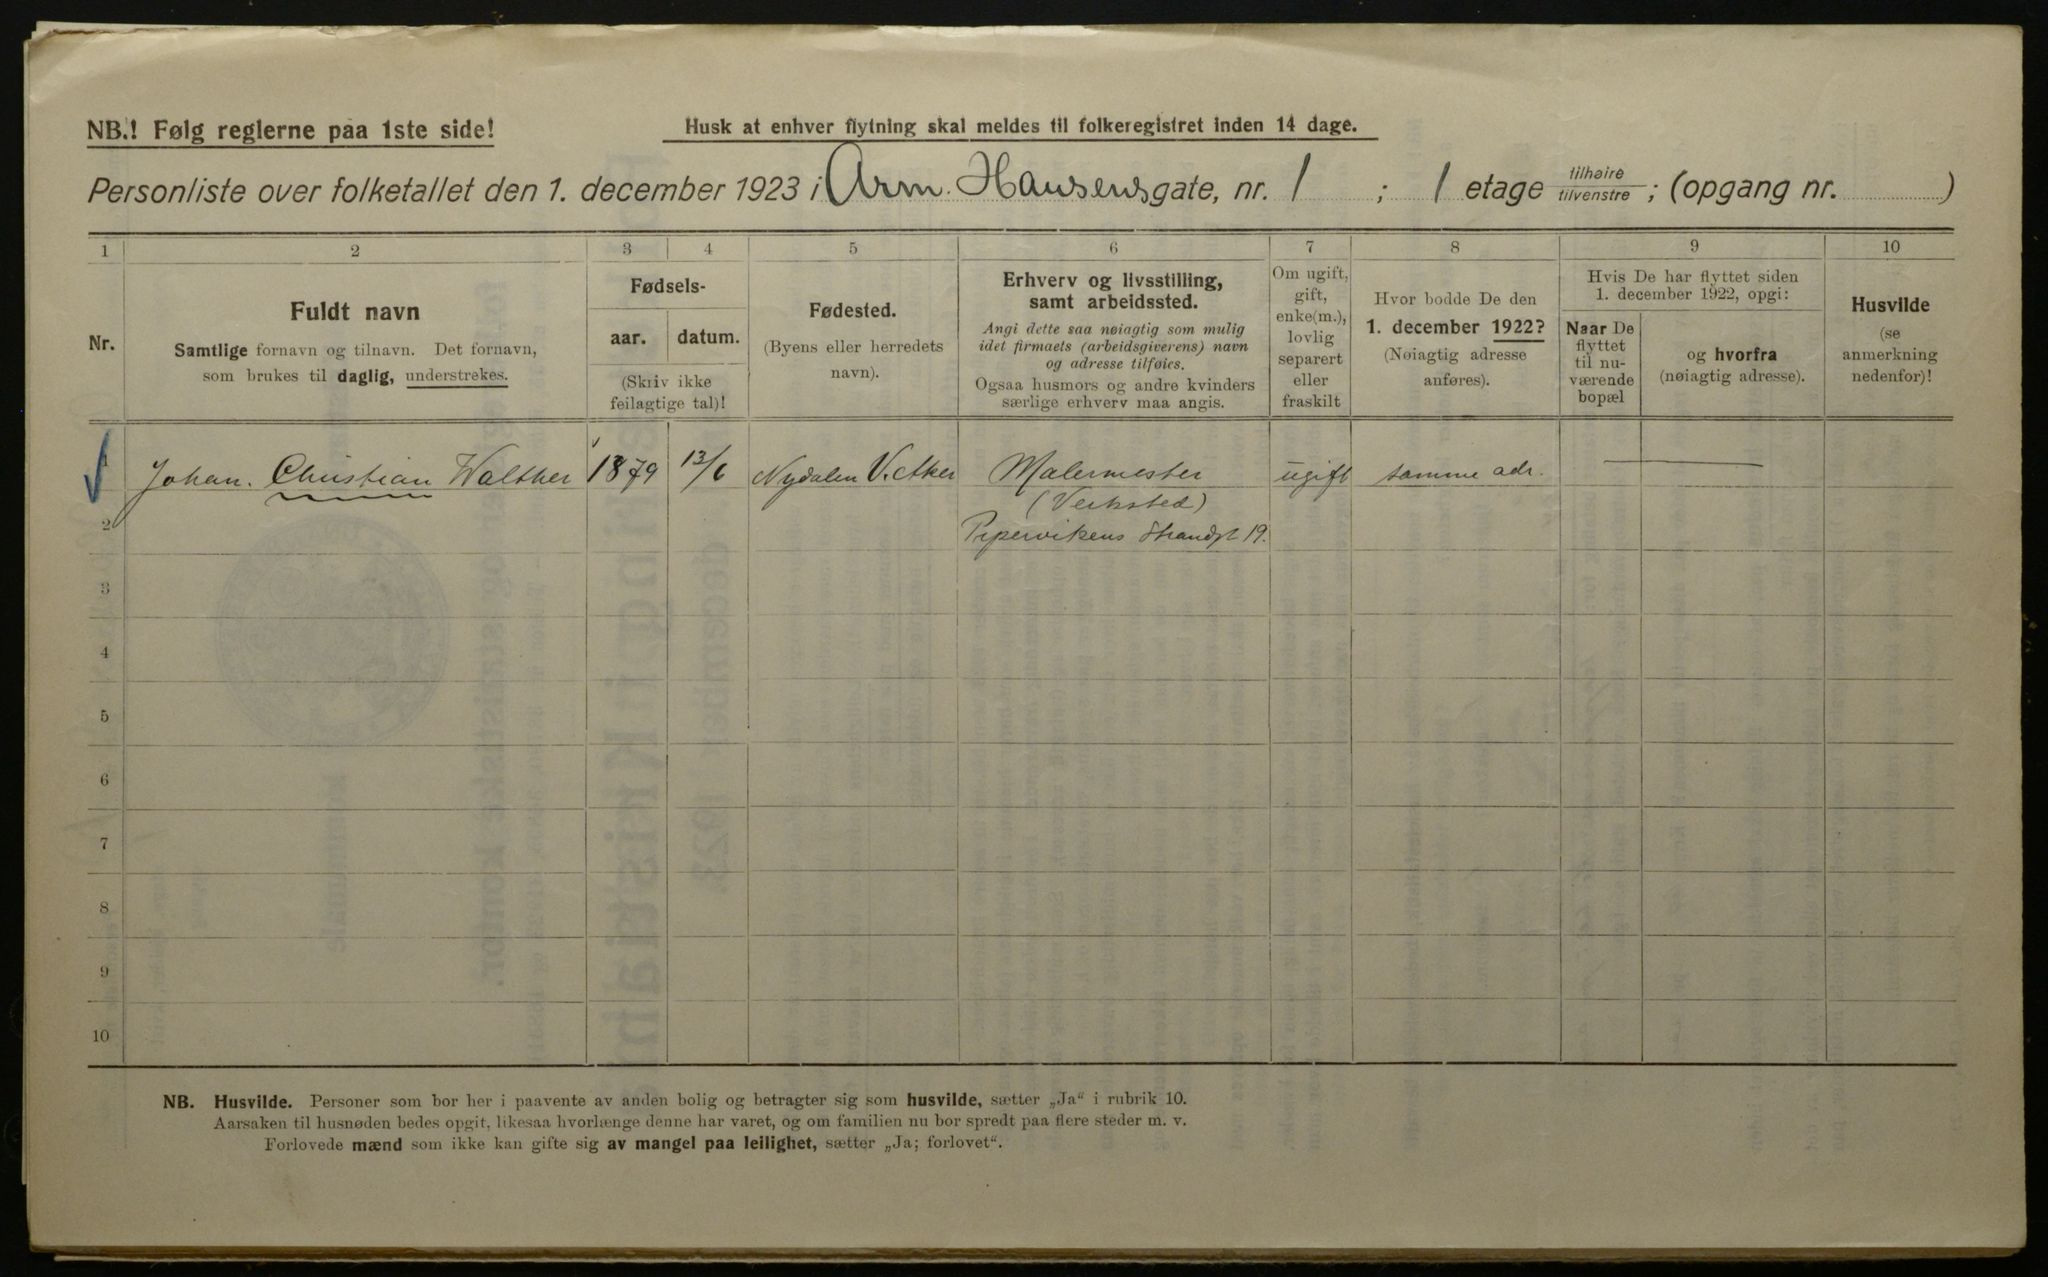 NB.! Følg reglerne paa 1ste side!
Husk at enhver flytning skal meldes til folkeregistret inden 14 dage.
Personliste over folketallet den 1. december 1923 i Arm. Hansensgate, nr. 1 ; 1 etage tilhøire/tilvenstre ; (opgang nr. )
1 2 3 4 5 6 7 8 9 10
Nr.
Fuldt navn
Samtlige fornavn og tilnavn. Det fornavn,
som brukes til daglig, understrekes.
Fødsels-
aar. datum.
(Skriv ikke
feilagtige tal)!
Fødested.
(Byens eller herredets
navn).
Erhverv og livsstilling,
samt arbeidssted.
Angi dette saa nøiagtig som mulig
idet firmaets (arbeidsgiverens) navn
og adresse tilføies.
Ogsaa husmors og andre kvinders
særlige erhverv maa angis.
Om ugift,
gift,
enke(m.),
lovlig
separert
eller
fraskilt
Hvor bodde De den
1. december 1922?
(Nøiagtig adresse
anføres).
Hvis De har flyttet siden
1. december 1922, opgi:
Naar De
flyttet
til nu-
værende
bopæl
og hvorfra
(nøiagtig adresse).
Husvilde
(se
anmerkning
nedenfor)!
Johan. Christian Walther 1879 13/6 Nydalen V. Aker Malermester ugift samme adr.
(Verksted)
2 Pipervikens Strandgt 19.
3
4
5
6
7
8
9
10
NB. Husvilde. Personer som bor her i paavente av anden bolig og betragter sig som husvilde, sætter „Ja“ i rubrik 10.
Aarsaken til husnøden bedes opgit, likesaa hvorlænge denne har varet, og om familien nu bor spredt paa flere steder m. v.
Forlovede mænd som ikke kan gifte sig av mangel paa leilighet, sætter „Ja; forlovet“.